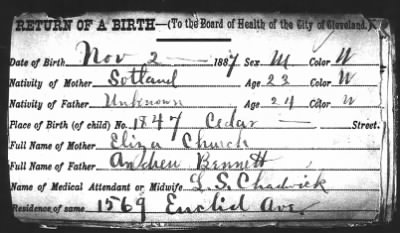 RETURN OF A BIRTH—(To the Board of Health of the City of Cleveland.)
Date of Birth Nov 2 — 1887 Sex M Color W
Nativity of Mother Sotland Age 23 Color W
Nativity of Father Unknown Age 24 Color W
Place of Birth (of child) No. 1847 Cedar — Street.
Full Name of Mother Eliza Church
Full Name of Father Andrew Bennett
Name of Medical Attendant or Midwife L. S. Chadwick
Residence of same 1569 Euclid Ave.